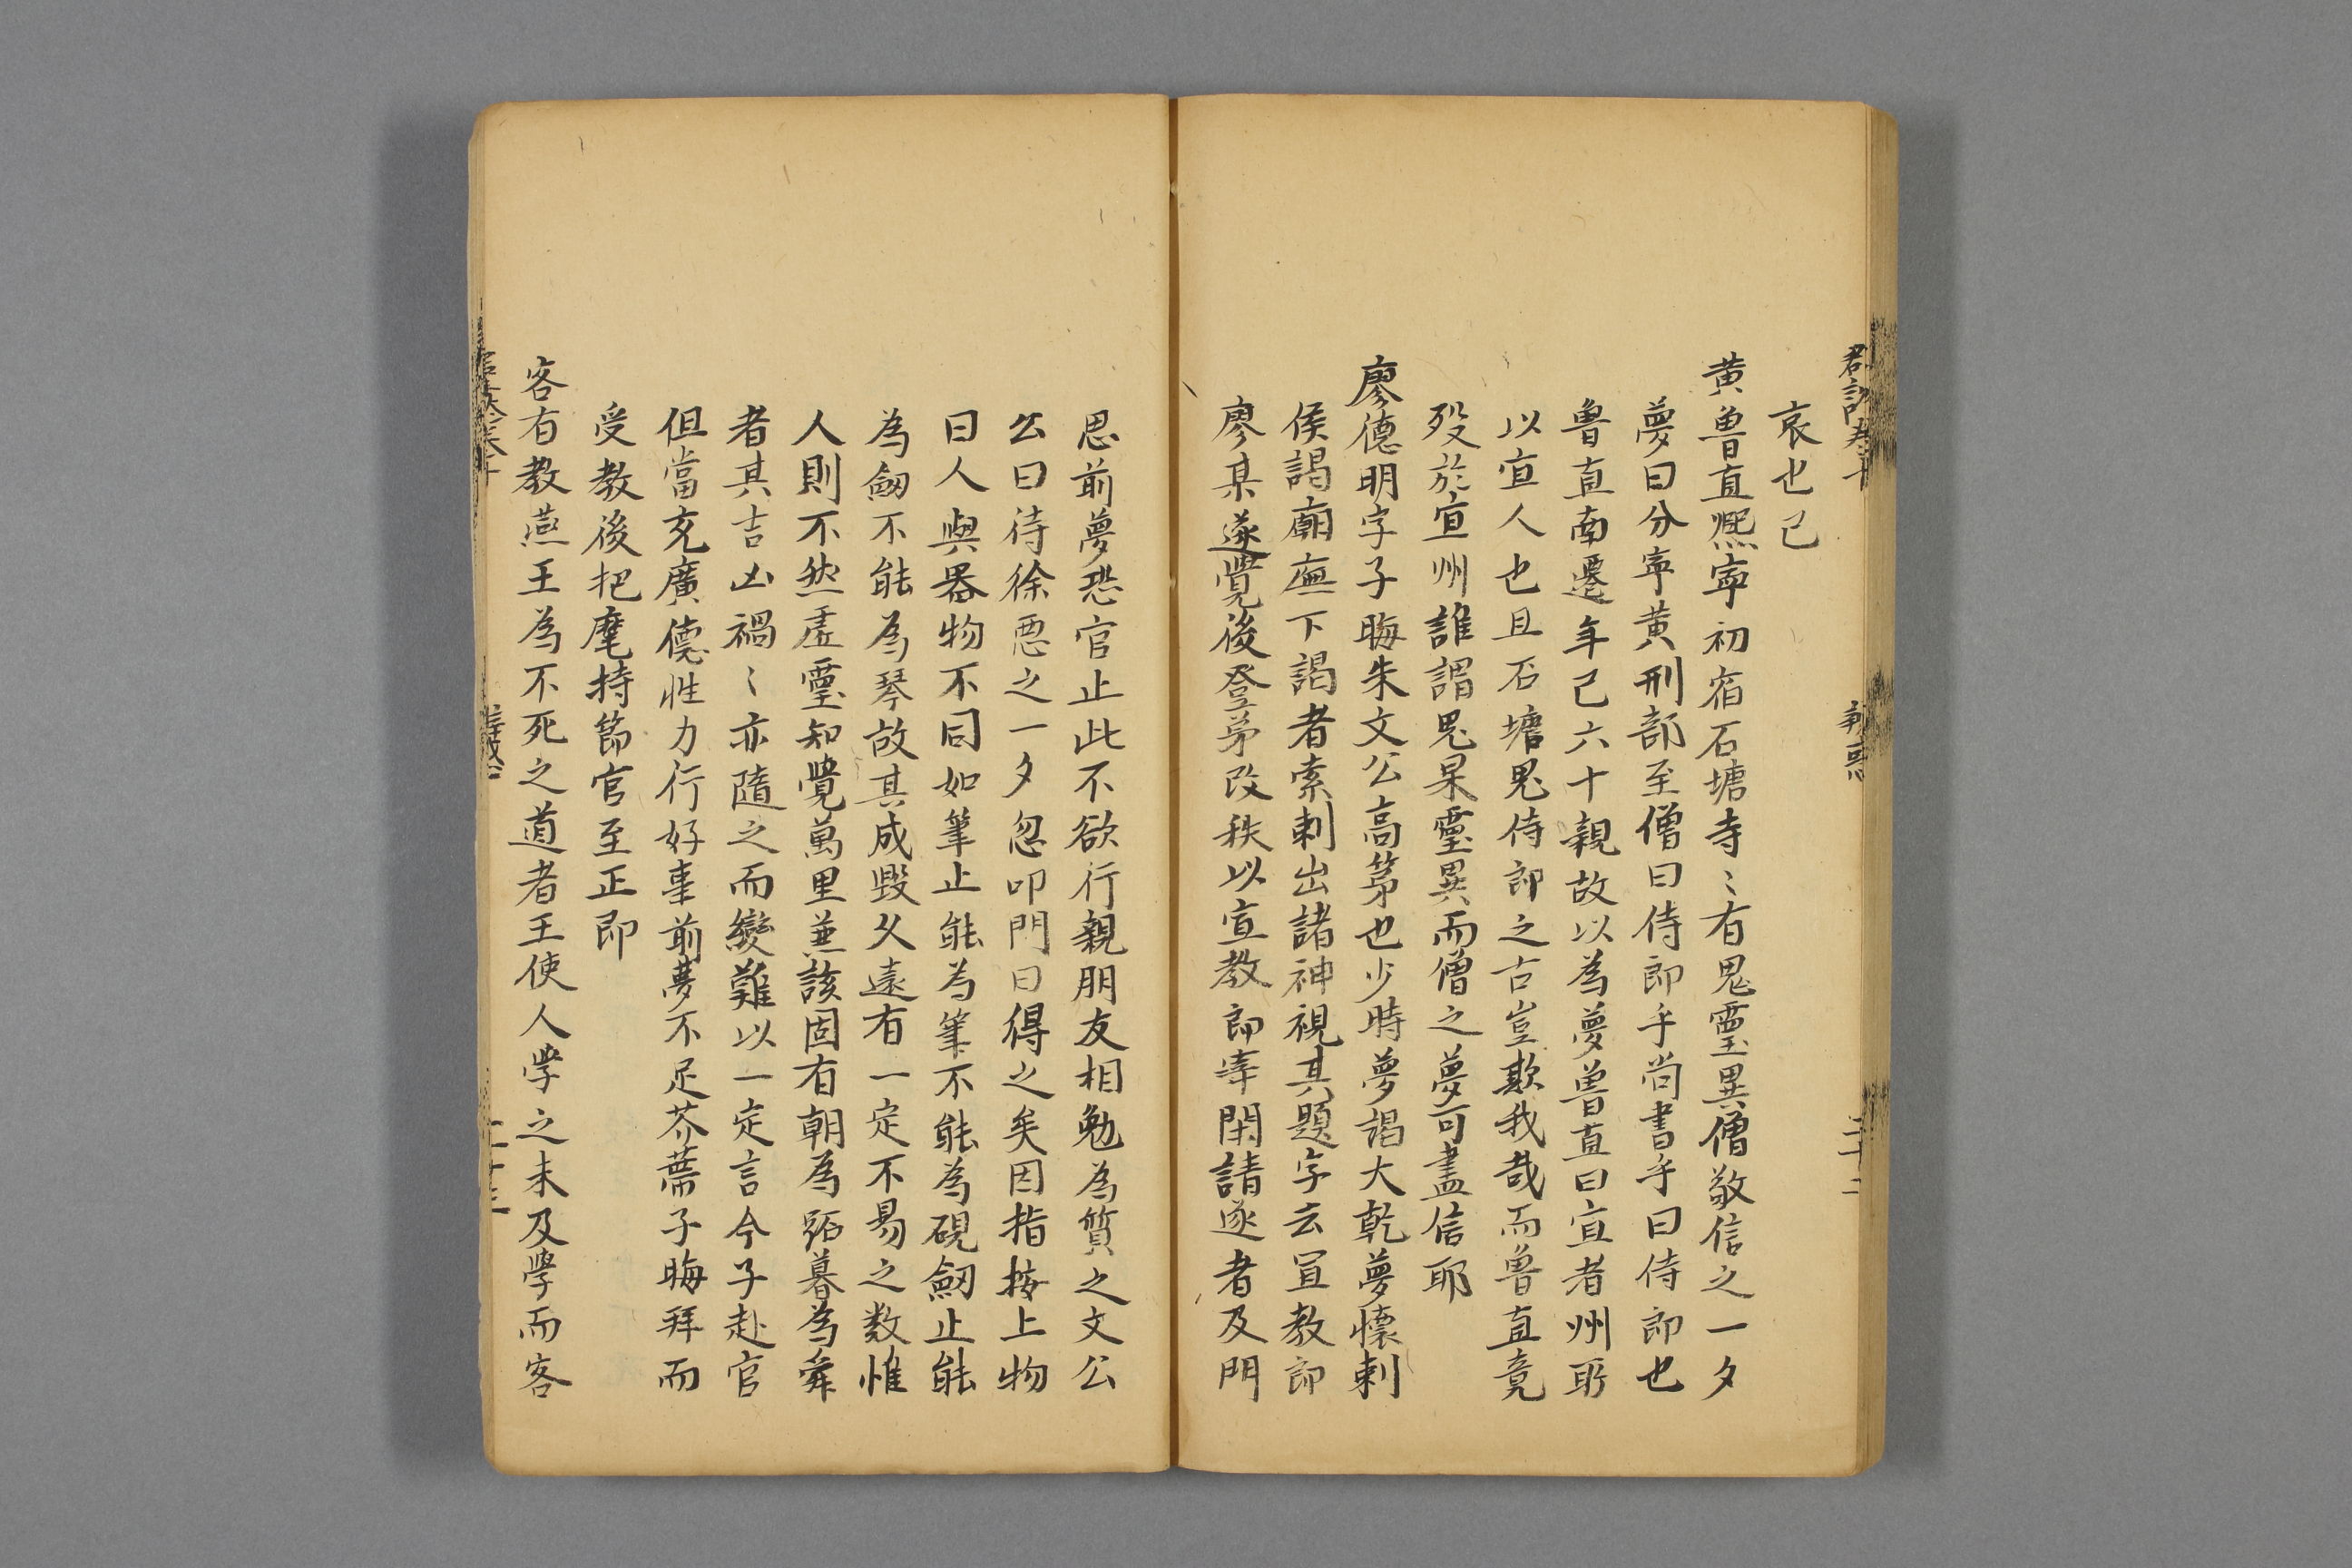 哀也已
黄魯直熈寕初宿石塘寺〻有鬼靈異僧敬信之一夕
夢曰分寕黄刑部至僧曰侍郎乎尚書乎曰侍郎也
魯直南遷年已六十親故以為夢魯直曰宜者州所
以宜人也且石塘鬼侍郎之占豈欺我哉而魯直竟
殁於宜州誰謂鬼果靈異而僧之夢可盡信耶
廖德明字子晦朱文公高第也少時夢謁大乾夢懷刺
侯謁廟廡下謁者索刺出諸神視其題字云宣教郎
廖某遂覺後登第改秩以宣教郎宰閩請遂者及門
思前夢恐官止此不欲行親朋友相勉為質之文公
公曰待徐思之一夕忽叩門曰得之矣因指按上物
曰人與器物不同如筆止能為筆不能為硯劔止能
為劔不能為琴故其成毀久遠有一定不易之数惟
人則不然虚靈知覺萬里兼該固有朝為跖暮為舜
者其吉凶禍〻亦隨之而變難以一定言今子赴官
但當充廣德性力行好事前夢不足芥蔕子晦拜而
受教後把麾持節官至正郎
客有教燕王為不死之道者王使人學之未及學而客
二十二
二十三